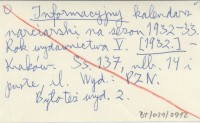 Informacyjny kalendarz
narciarski na sezon 1932-33.
Rok wydawnictwa V. [1932.] -
Kraków. Ss. 137, nlb. 14 i
puste, il. Wyd.: P.Z.N.
Było też wyd. 2.